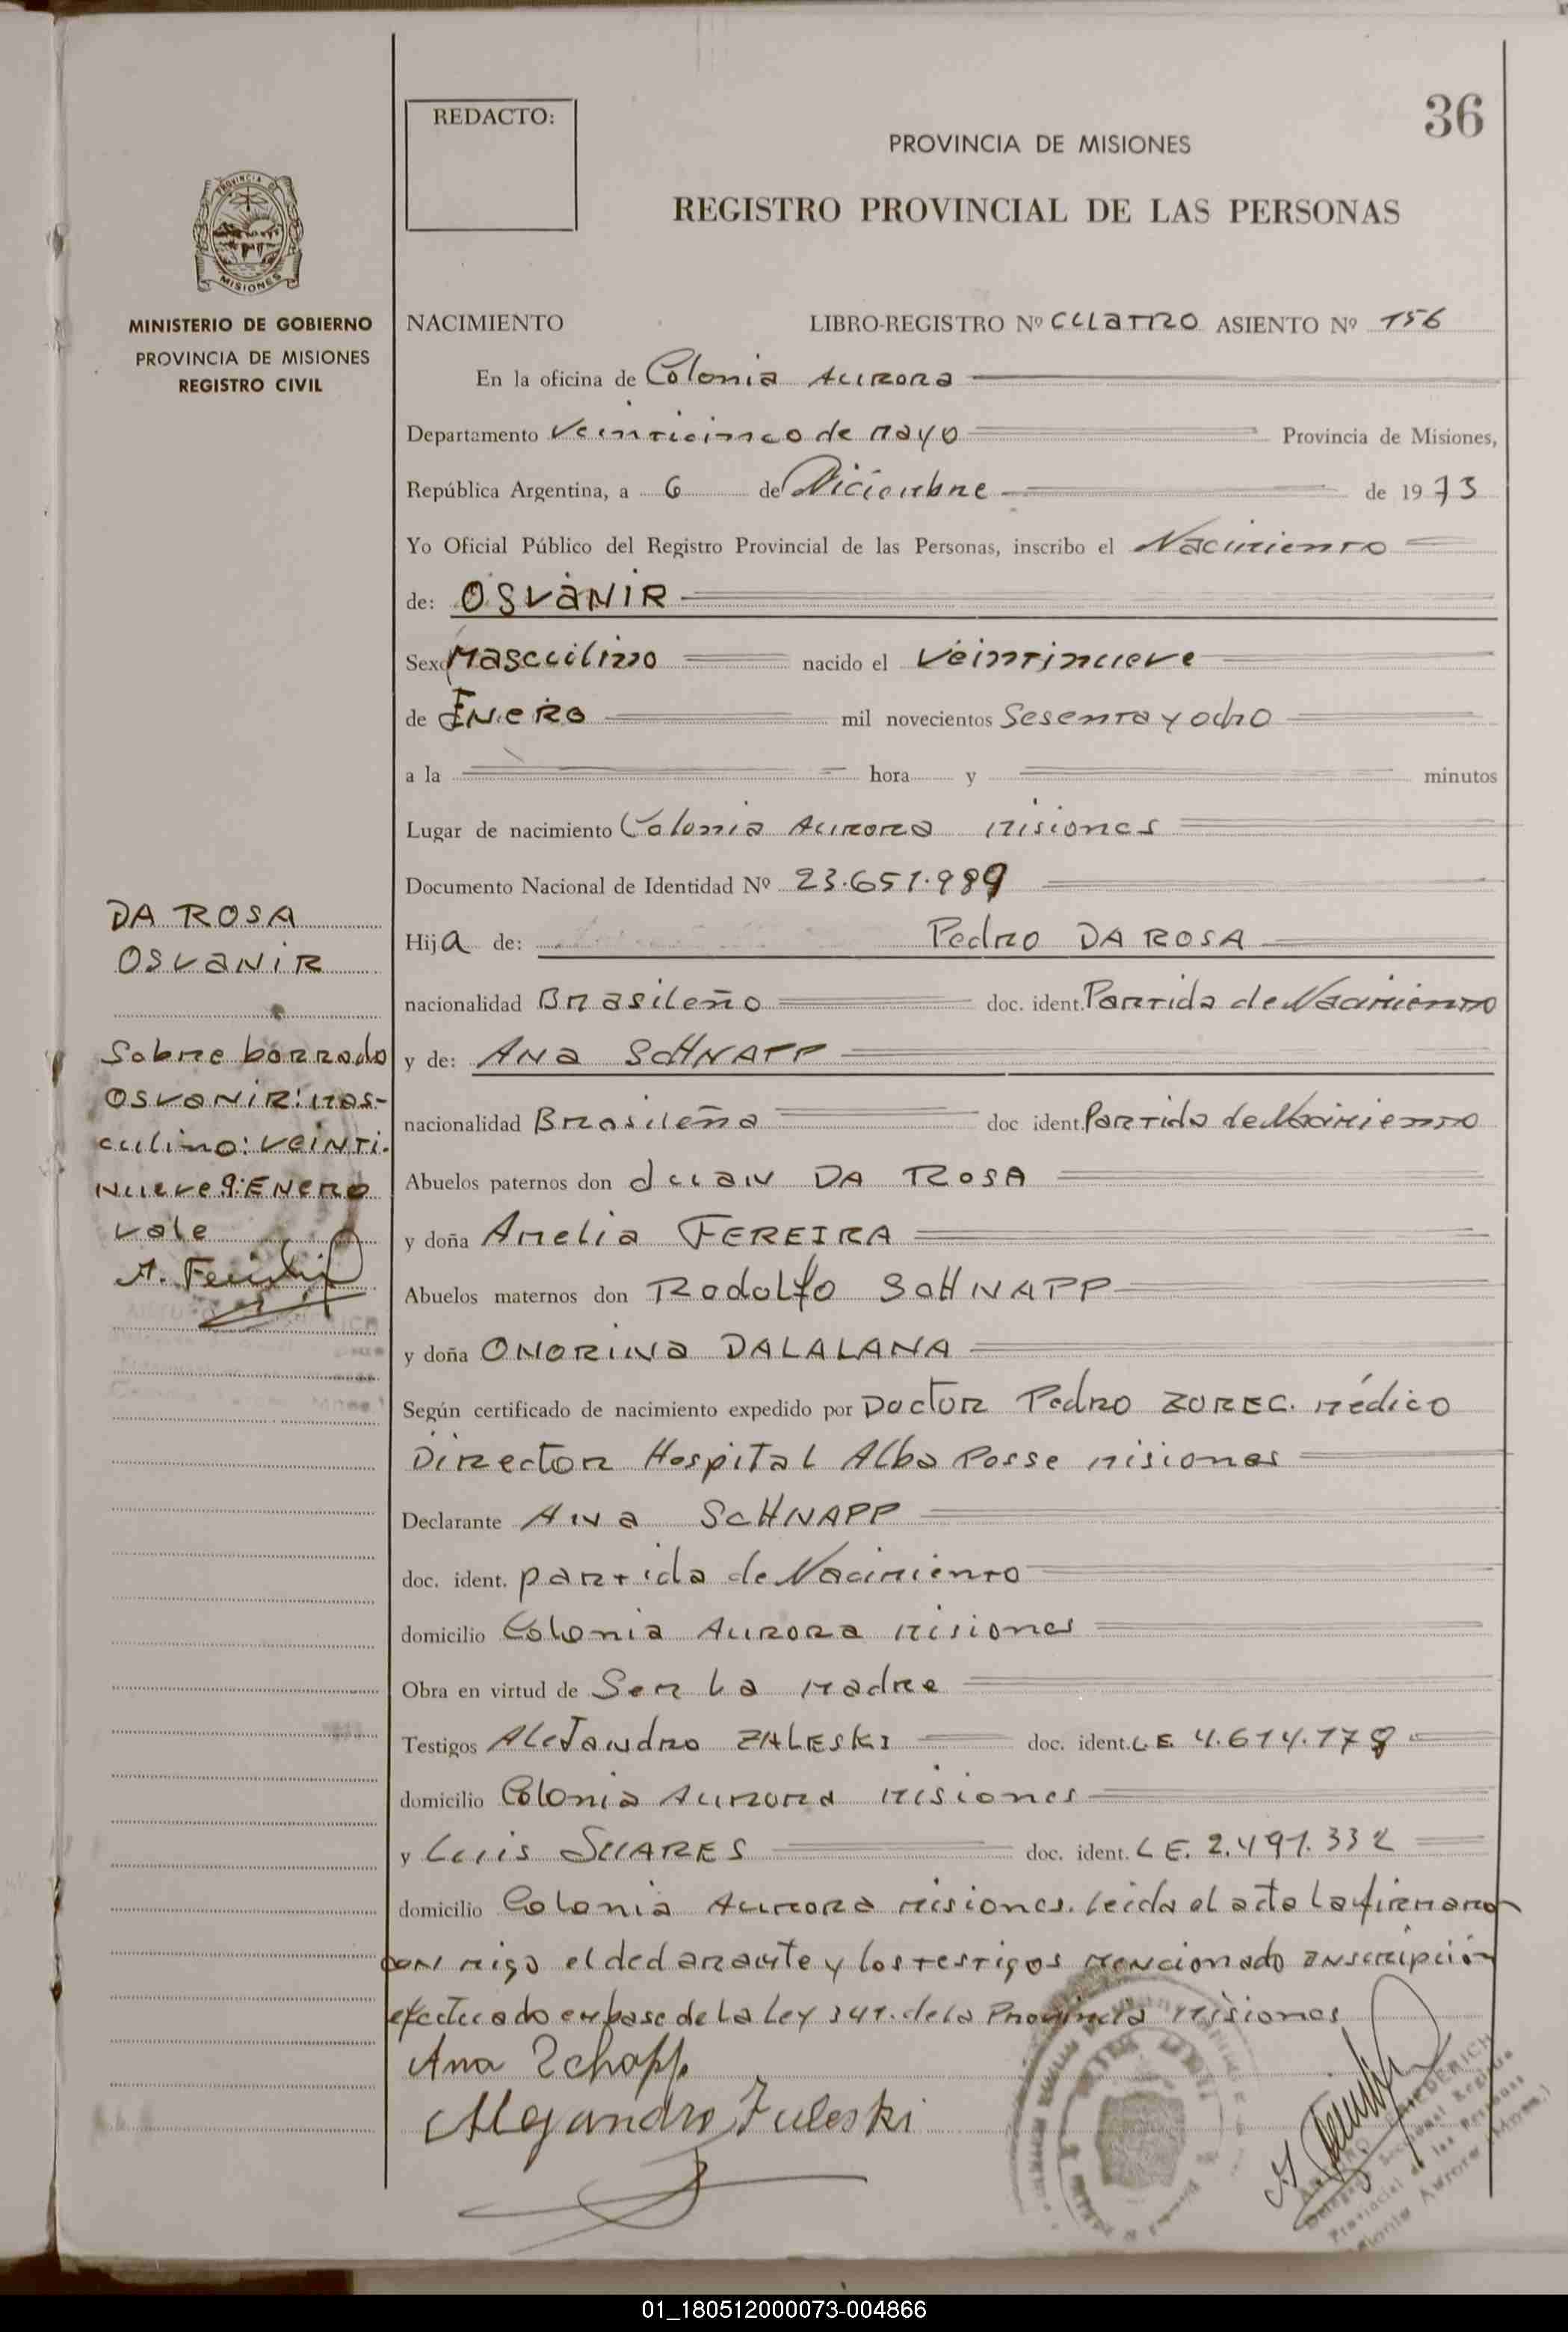 36
REDACTO:
PROVINCIA DE MISIONES
REGISTRO PROVINCIAL DE LAS PERSONAS
MISIONES
MINISTERIO DE GOBIERNO
PROVINCIA DE MISIONES
REGISTRO CIVIL
NACIMIENTO LIBRO-REGISTRO Nº CUATRO ASIENTO Nº 156
En la oficina de Colonia Aurora
Departamento Veinticinco de Mayo Provincia de Misiones,
República Argentina, a 6 de Diciembre de 1973
Yo Oficial Público del Registro Provincial de las Personas, inscribo el Nacimiento
de: OSVANIR
Sexo Masculino nacido el Veintinueve
de ENERO mil novecientos Sesenta y ocho
a la hora y minutos
Lugar de nacimiento Colonia Aurora Misiones
Documento Nacional de Identidad Nº 23.651.989
Hija de: Pedro DA ROSA
nacionalidad Brasileño doc. ident. Partida de Nacimiento
y de: Ana SCHNAPP
nacionalidad Brasileña doc ident. Partida de Nacimiento
Abuelos paternos don Juan DA ROSA
y doña Amelia FEREIRA
Abuelos maternos don Rodolfo SCHNAPP
y doña ONORINA DALALANA
Según certificado de nacimiento expedido por Doctor Pedro ZOREC. Médico
Director Hospital Alba Posse Misiones
Declarante Ana SCHNAPP
doc. ident. partida de Nacimiento
domicilio Colonia Aurora Misiones
Obra en virtud de Ser La Madre
Testigos Alejandro ZALESKI doc. ident. L.E. 4.614.178
domicilio Colonia Aurora Misiones
y Luis SUARES doc. ident. L E. 2.491.332
domicilio Colonia Aurora Misiones. leida el acta la firmaron
con migo el declarante y los testigos mencionado inscripción
efectuado en base de la Ley 341. de la Provincia Misiones
Ana Schapp
Alejandro Zuleski
DA ROSA
OSVANIR
Sobre borrado
OSVANIR: mas-
culino: veinti.
nueve 9: ENERO
vale